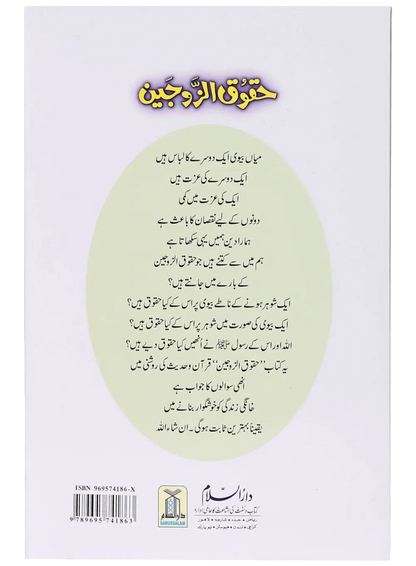 حقوق الزّوجَین
میاں بیوی ایک دوسرے کا لباس ہیں
ایک دوسرے کی عزت ہیں
ایک کی عزت میں کمی
دونوں کے لیے نقصان کا باعث ہے
ہمارا دین ہمیں یہی سکھاتا ہے
ہم میں سے کتنے ہیں جو حقوق الزوجین
کے بارے میں جانتے ہیں؟
ایک شوہر ہونے کے ناطے بیوی پر اس کے کیا حقوق ہیں؟
ایک بیوی کی صورت میں شوہر پر اس کے کیا حقوق ہیں؟
اللہ اور اس کے رسول ﷺ نے انھیں کیا حقوق دیے ہیں؟
یہ کتاب "حقوق الزوجین" قرآن و حدیث کی روشنی میں
انھی سوالوں کا جواب ہے
خانگی زندگی کو خوشگوار بنانے میں
یقیناً بہترین ثابت ہوگی۔ ان شاء اللہ
ISBN 969574186-X
9 789695 741863
دارالسلام
DARUSSALAM
دارالسلام
کتاب و سنت کی اشاعت کا عالمی ادارہ
ریاض • جدہ • شارجہ • لاہور
کراچی • لندن • ہیوسٹن • نیویارک